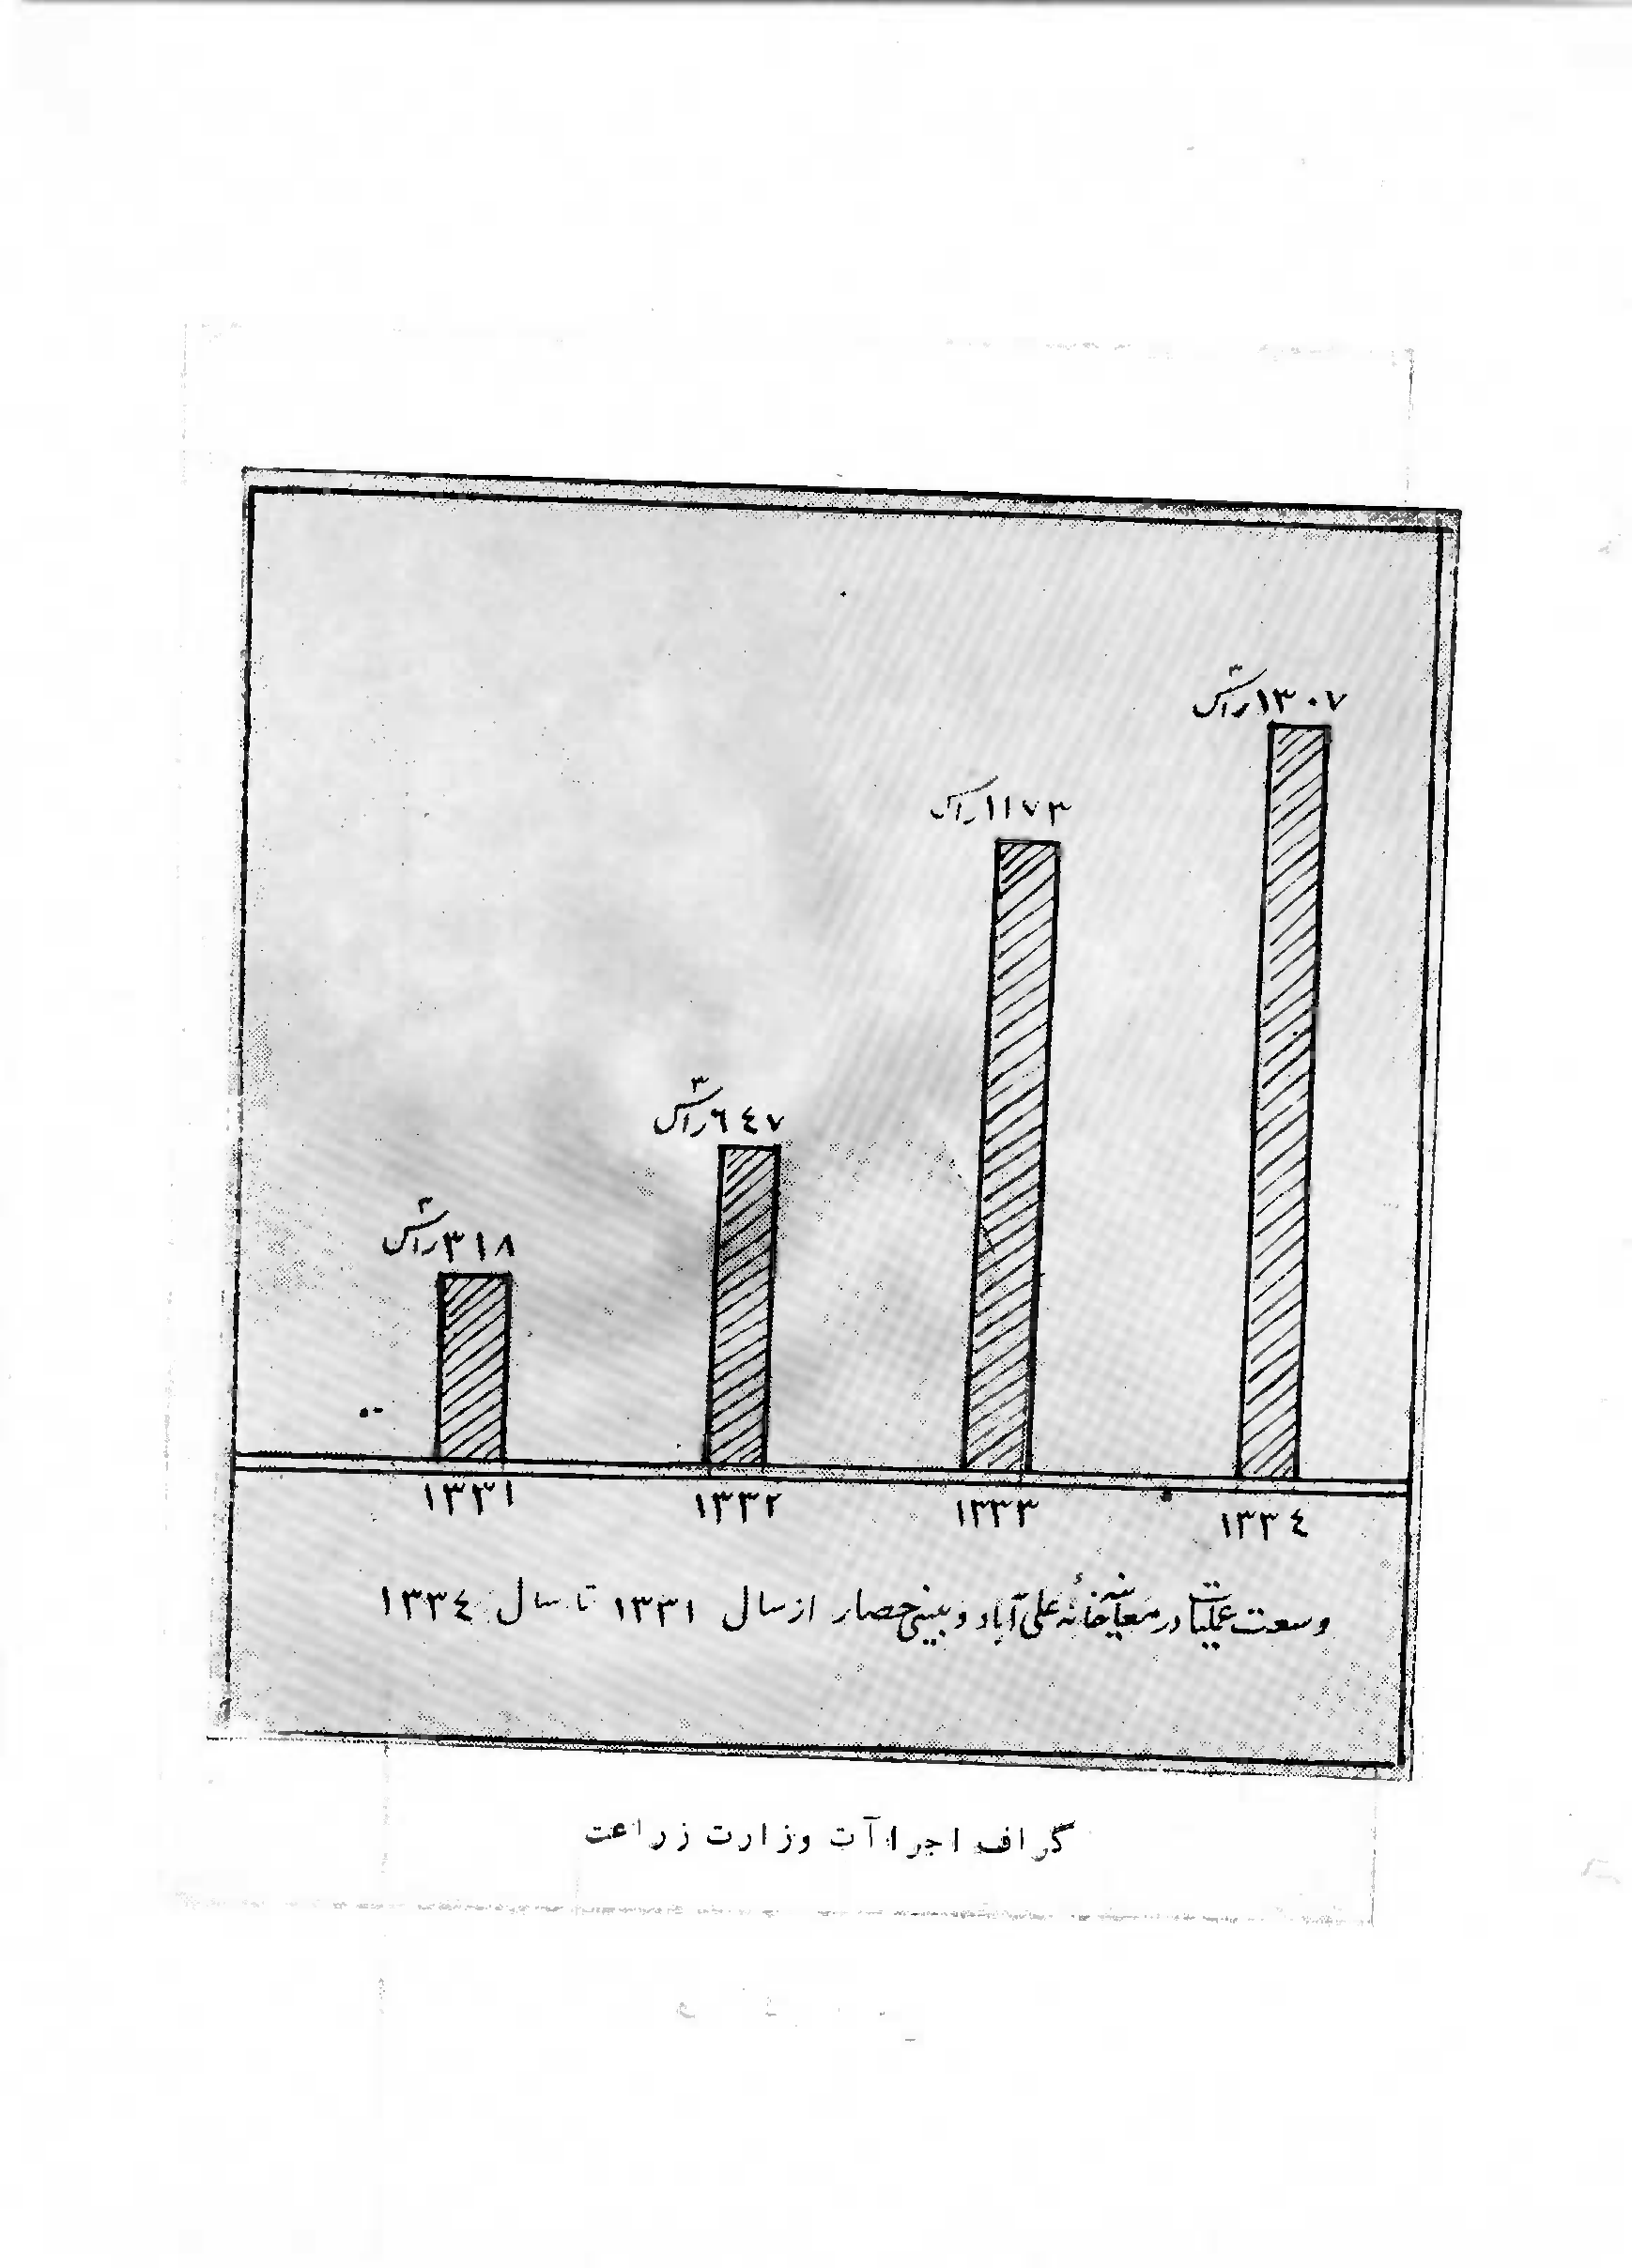 ۱۳۰۷ راس
۱۱۷۳ راس
٦٤۷ راس
۳۱۸ راس
۱۳۳۱ ۱۳۳۲ ۱۳۳۳ ۱۳۳٤
وسعت عملیات در معاینه خانهٔ علی آباد و بینی حصار از سال ۱۳۳۱ تا سال ۱۳۳٤
گراف اجراآت وزارت زراعت